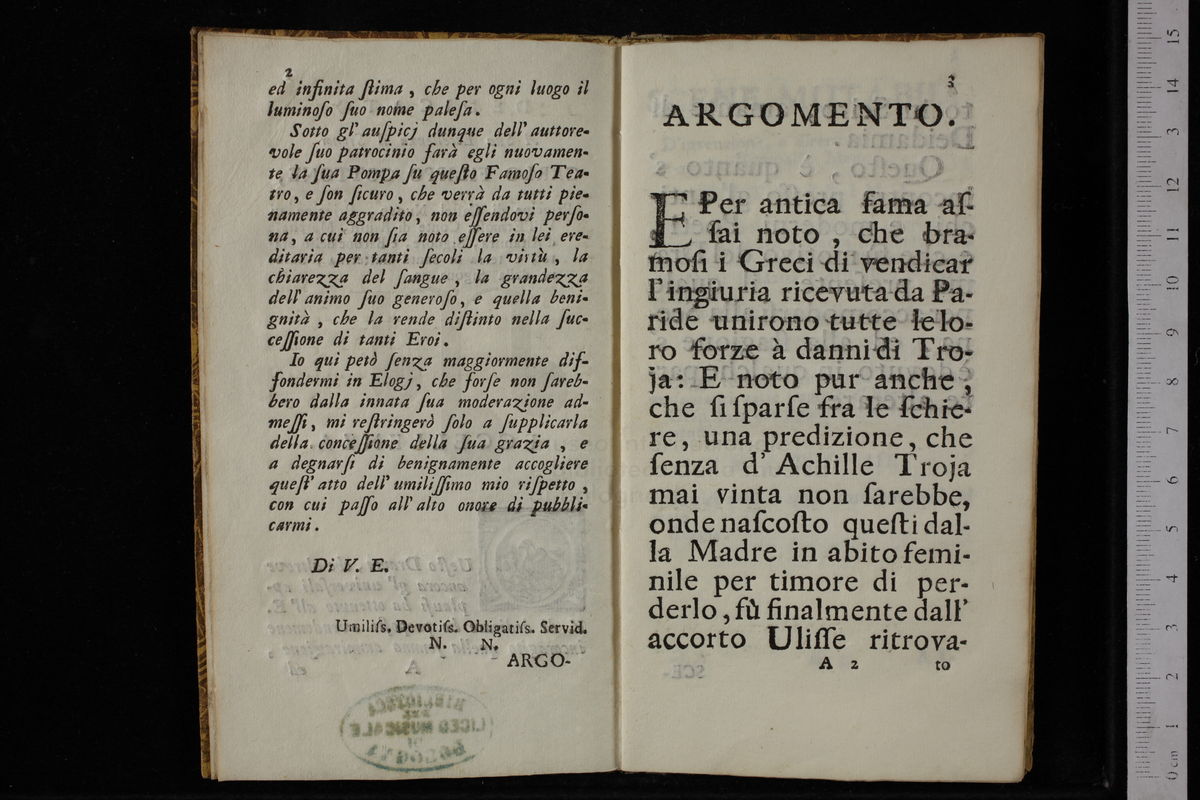 2
ed infinita ſtima , che per ogni luogo il
luminoſo ſuo nome paleſa .
Sotto gl' auſpicj dunque dell' auttore-
vole ſuo patrocinio farà egli nuovamen-
te la ſua Pompa ſu queſto Famoſo Tea-
tro , e ſon ſicuro , che verrà da tutti pie-
namente aggradito , non eſſendovi perſo-
na , a cui non ſia noto eſſere in lei ere-
ditaria per tanti ſecoli la virtù , la
chiarezza del ſangue , la grandezza
dell' animo ſuo generoſo , e quella beni-
gnità , che la rende diſtinto nella ſuc-
ceſſione di tanti Eroi .
Io qui petò ſenza maggiormente dif-
fondermi in Elogj , che forſe non ſareb-
bero dalla innata ſua moderazione ad-
meſſi , mi reſtringerò ſolo a ſupplicarla
della conceſſione della ſua grazia , e
a degnarſi di benignamente accogliere
queſt' atto dell' umiliſſimo mio riſpetto ,
con cui paſſo all' alto onore di pubbli-
carmi .
Di V. E.
Umiliſs. Devotiſs. Obligatiſs. Servid.
N. N.
ARGO-
3
ARGOMENTO.
E Per antica fama aſ-
ſai noto , che bra-
moſi i Greci di vendicar
l'ingiuria ricevuta da Pa-
ride unirono tutte le lo-
ro forze à danni di Tro-
ja : E noto pur anche ,
che ſi ſparſe fra le ſchie-
re , una predizione , che
ſenza d' Achille Troja
mai vinta non ſarebbe,
onde naſcoſto queſti dal-
la Madre in abito femi-
nile per timore di per-
derlo , fù finalmente dall'
accorto Uliſſe ritrova-
A 2 to